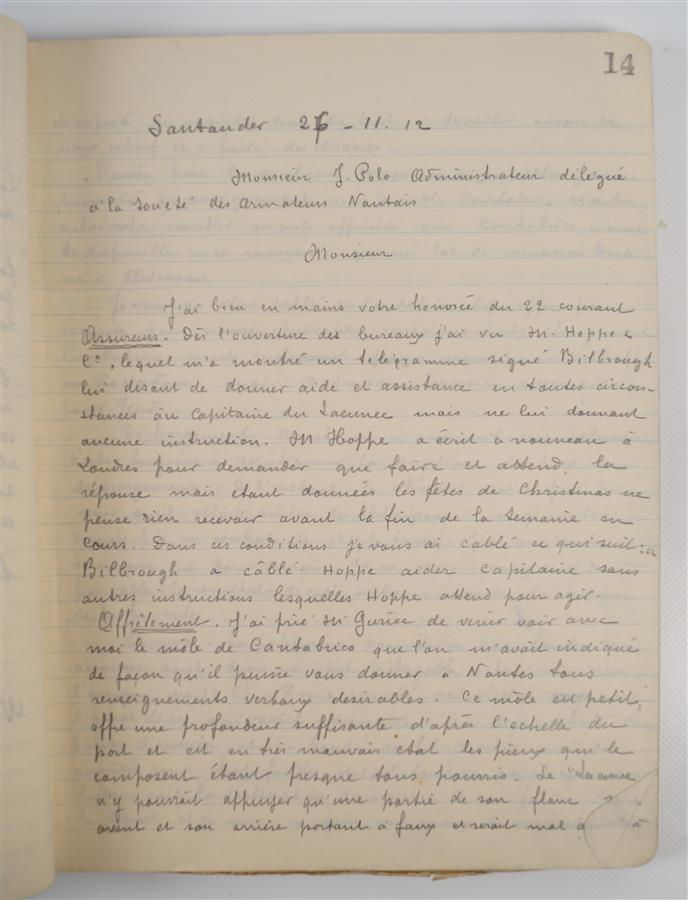 14
Santander 26 - 11. 12
Monsieur J. Polo Administrateur délégué
à la Société des Armateurs Nantais
Monsieur
J'ai bien en mains votre honorée du 22 courant
Assureurs. Dès l'ouverture des bureaux j'ai vu M. Hoppe &
Cº, lequel m'a montré un télégramme signé Bilbrough
lui disant de donner aide et assistance en toutes circon-
stances au Capitaine du mais ne lui donnant
aucune instruction. M Hoppe a écrit a nouveau à
Londres pour demander que faire et attend la
réponse mais etant données les fêtes de Christmas ne
pense rien recevoir avant la fin de la semaine en
cours. Dans ces conditions je vous ai cablé ce qui suit :
Bilbrough a câblé Hoppe aider capitaine sans
autres instructions lesquelles Hoppe attend pour agir.
Affrètement. J'ai prié M de venir voir avec
moi le môle de Cantabrico que l'on m'avait indiqué
de façon qu'il puisse vous donner à Nantes tous
renseignements verbaux desirables. Ce môle est petit,
offre une profondeur suffisante d'après l'echelle du
port et est en très mauvais etat les pieux qui le
composent étant presque tous pourris. Le
n'y pourrait appuyer qu'une partie de son flanc
avant et son arrière portant à faux et serait mal